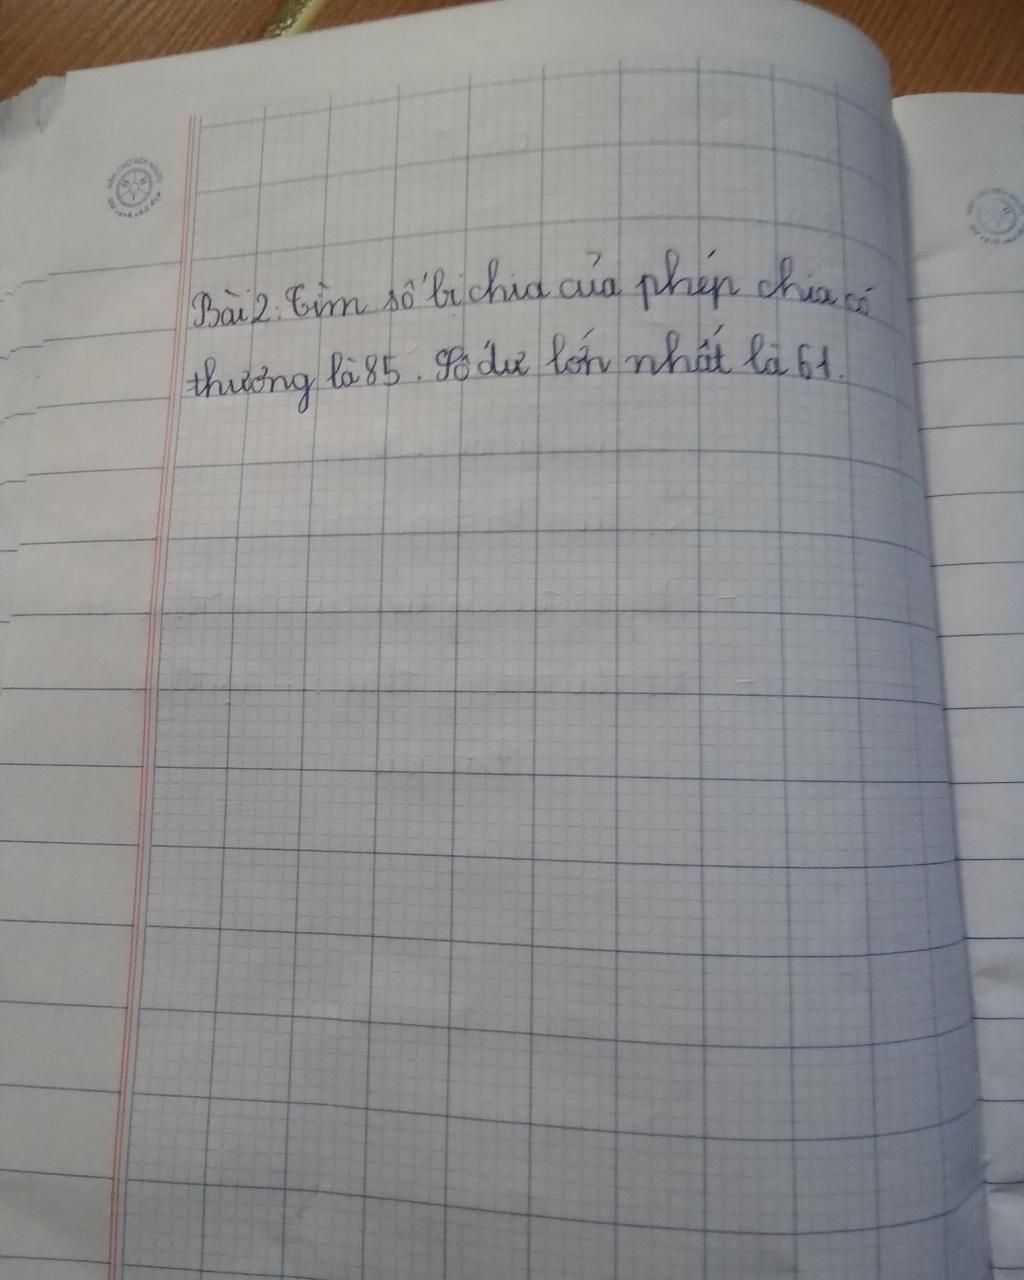 Bài 2. Tìm số bị chia của phép chia có
thương là 85. Số dư lớn nhất là 61.